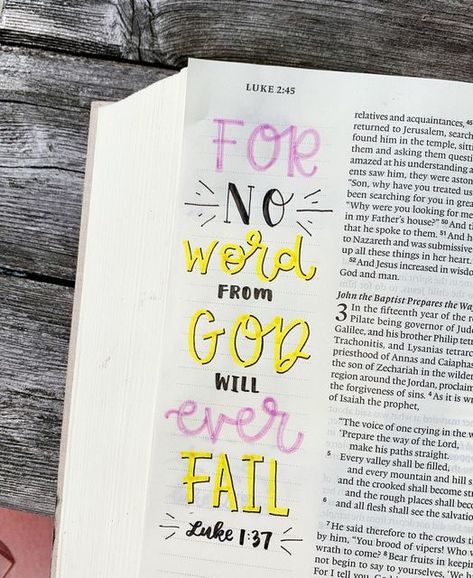 LUKE 2:45
FOR
NO
word
FROM
GOD
WILL
ever
FAIL
Luke 1:37
relatives and acquaintances, 45
returned to Jerusalem, search
found him in the temple, sitt
them and asking them quest
amazed at his understanding
ents saw him, they were aston
"Son, why have you treated us
been searching for you in great
"Why were you looking for me
in my Father's house?" 50 And th
that he spoke to them. 51 And h
to Nazareth and was submissive
up all these things in her heart.
52 And Jesus increased in wisdom
God and man.
John the Baptist Prepares the Way
3 In the fifteenth year of the r
Pilate being governor of Jude
Galilee, and his brother Philip tetr
Trachonitis, and Lysanias tetrarc
priesthood of Annas and Caiapha
the son of Zechariah in the wilder
region around the Jordan, proclaim
the forgiveness of sins. 4 As it is w
of Isaiah the prophet,
"The voice of one crying in the w
'Prepare the way of the Lord,
make his paths straight.
5 Every valley shall be filled,
and every mountain and hill s
and the crooked shall become str
and the rough places shall beco
6 and all flesh shall see the salvation
7 He said therefore to the crowds t
by him, "You brood of vipers! Who w
wrath to come? 8 Bear fruits in keepi
not begin to say to yourselves, 'We
For I tell you, God is able